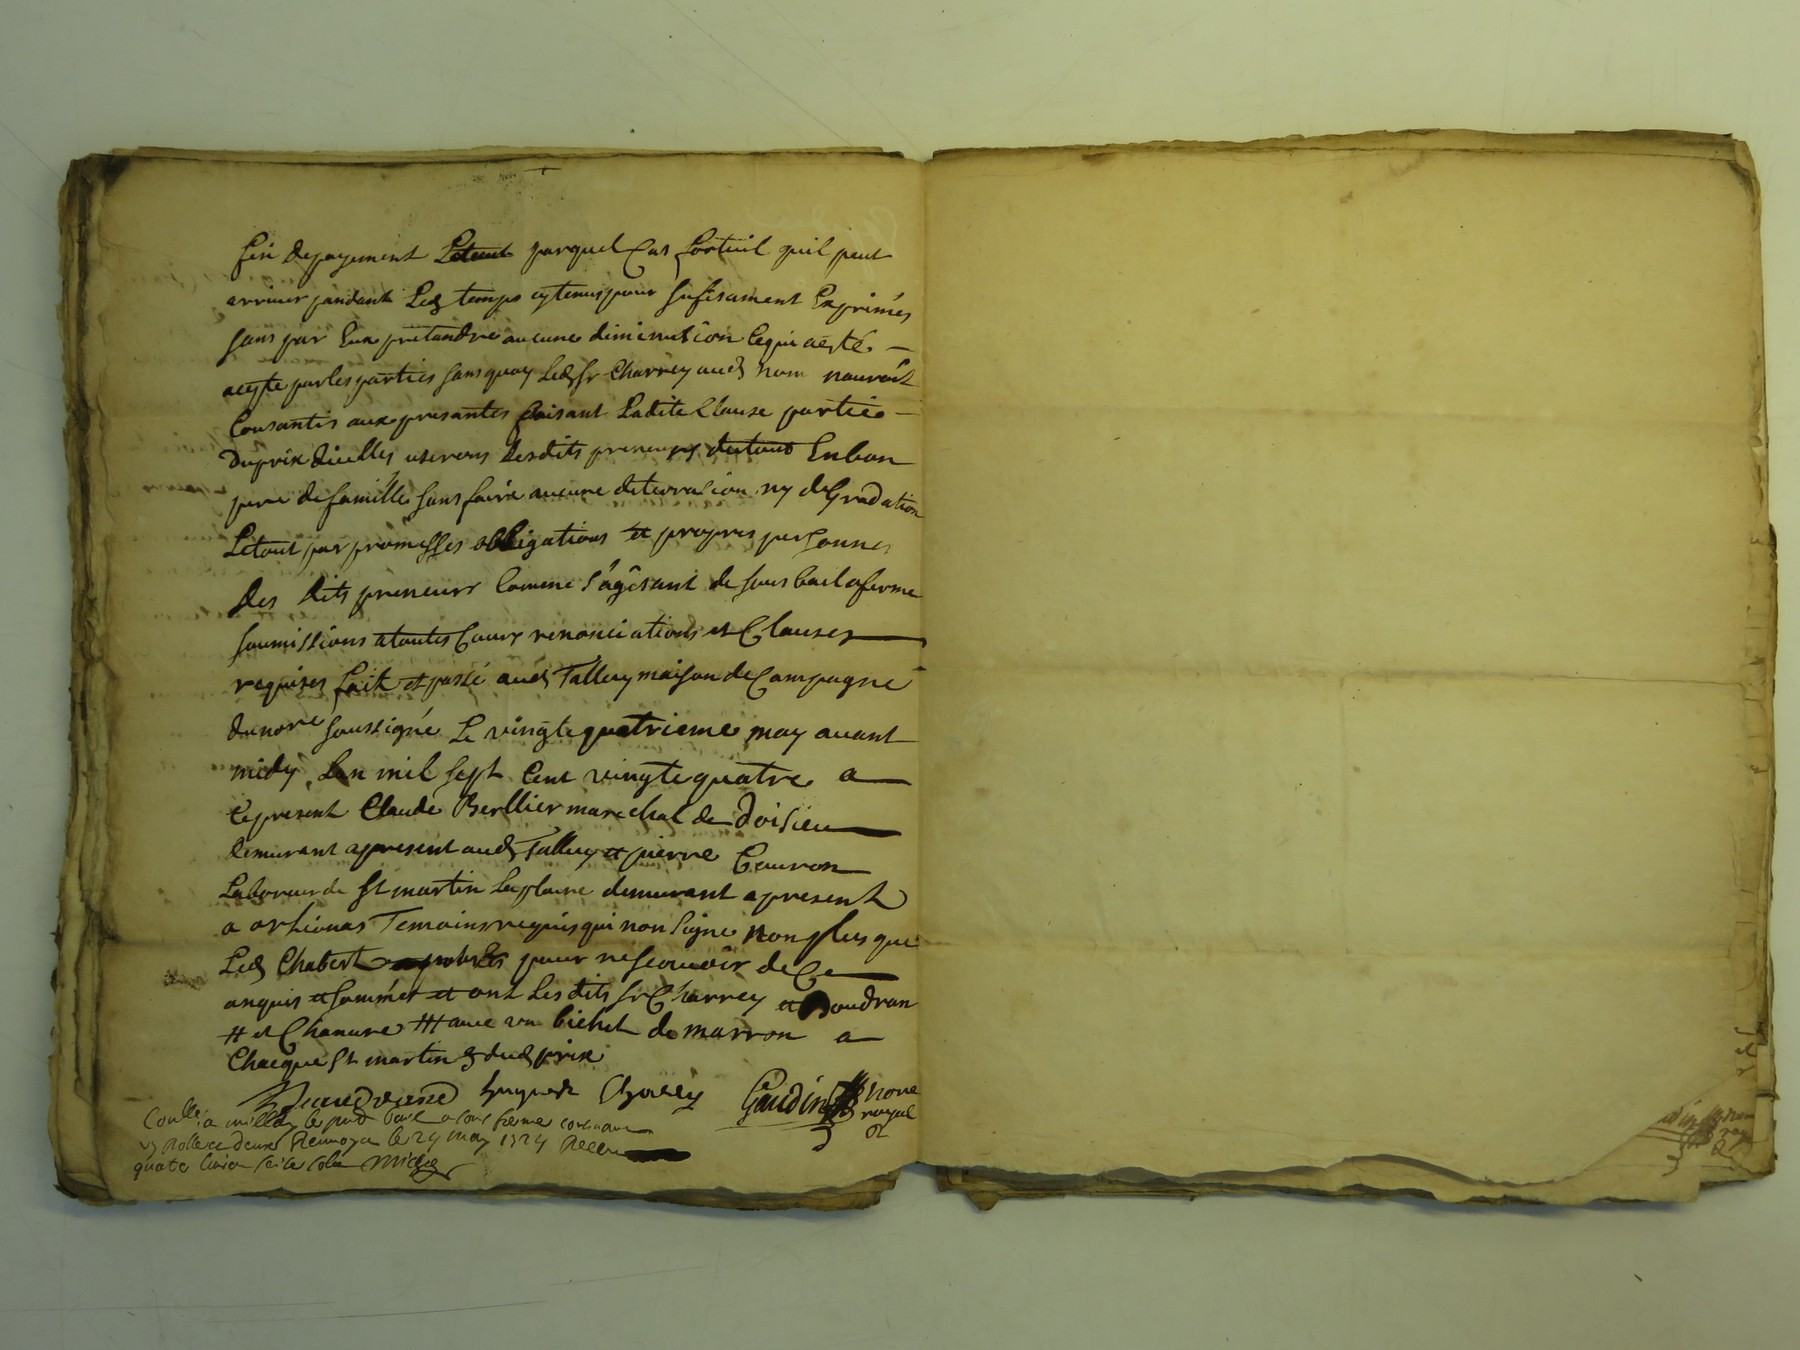 fin depayement Letout parquel Cas fortuil quil peut
arriver pandant Led temps cytenus pour sufisament Exprimés
sans par Eux pretandre aucune diminution Cequi aesté
acepte par les parties sans quoy Led Sr Charrey aud nom nauroit
Consantis aux presantes faisant Ladite Clause partie
Du prix dicelles userons Lesdits preneurs du tout En bon
pere de famille sans faire aucune deterrasion ny deGradation
Letout par promesses obligations et propres personnes
Des dits preneurs Comme s'agisant de sous bail aferme
soumissions atoutes Cours renonciations et Clauses
requises fait et passé aud Talluy maison de Campagne
du nore soussigné Le vingte quatrieme may avant
midy Lan mil sept Cent vingte quatre a
Cepresent Claude Berllier marechal de Doisieu
demurant apresent aud Talluy et pierre Couron
Laboreur de St martin Laplaine demurant apresent
a orlienas Temoins requis qui non signe non plus que
Led Chabert pour ne scavoir de Ce
anquis et sommés et ont Lesdits Sr Charrey et Boudran
# et Chanure ## avec un bichet de marron a
Chacque St martin & dud prix
huguet Charrey Gaudin nore
royal
le 24 may 1724